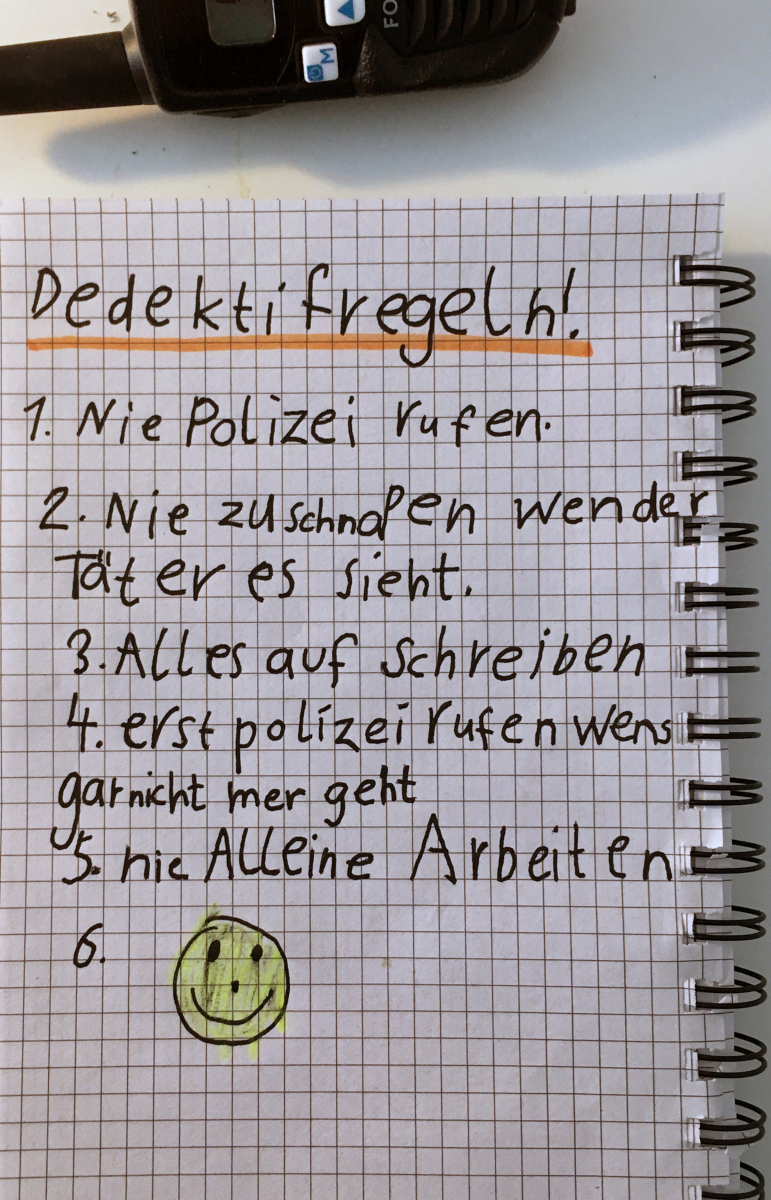 FO
M
Dedektifregeln!
1. Nie Polizei rufen.
2. Nie zuschnapen wender
Täter es sieht.
3. Alles auf schreiben
4. erst polizei rufen wens
garnicht mer geht
5. nie Alleine Arbeiten
6.